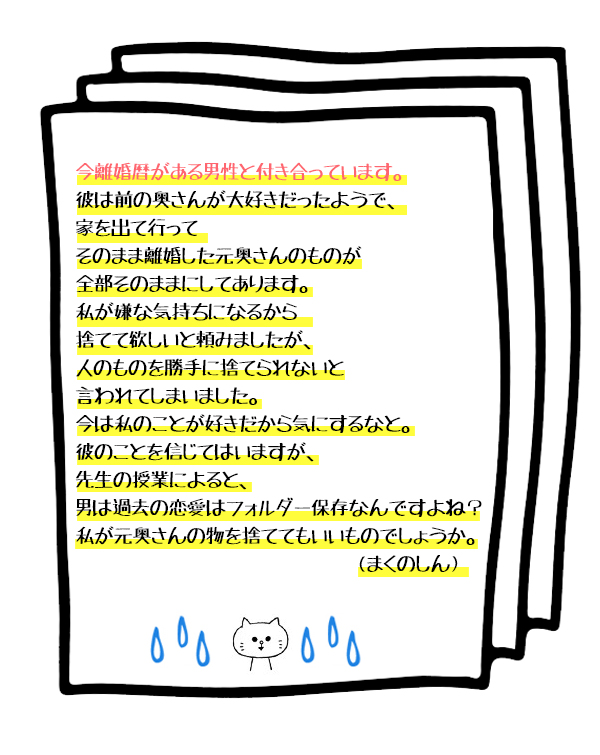 今離婚暦がある男性と付き合っています。
彼は前の奥さんが大好きだったようで、
家を出て行って
そのまま離婚した元奥さんのものが
全部そのままにしてあります。
私が嫌な気持ちになるから
捨てて欲しいと頼みましたが、
人のものを勝手に捨てられないと
言われてしまいました。
今は私のことが好きだから気にするなと。
彼のことを信じてはいますが、
先生の授業によると、
男は過去の恋愛はフォルダー保存なんですよね？
私が元奥さんの物を捨ててもいいものでしょうか。
（まくのしん）